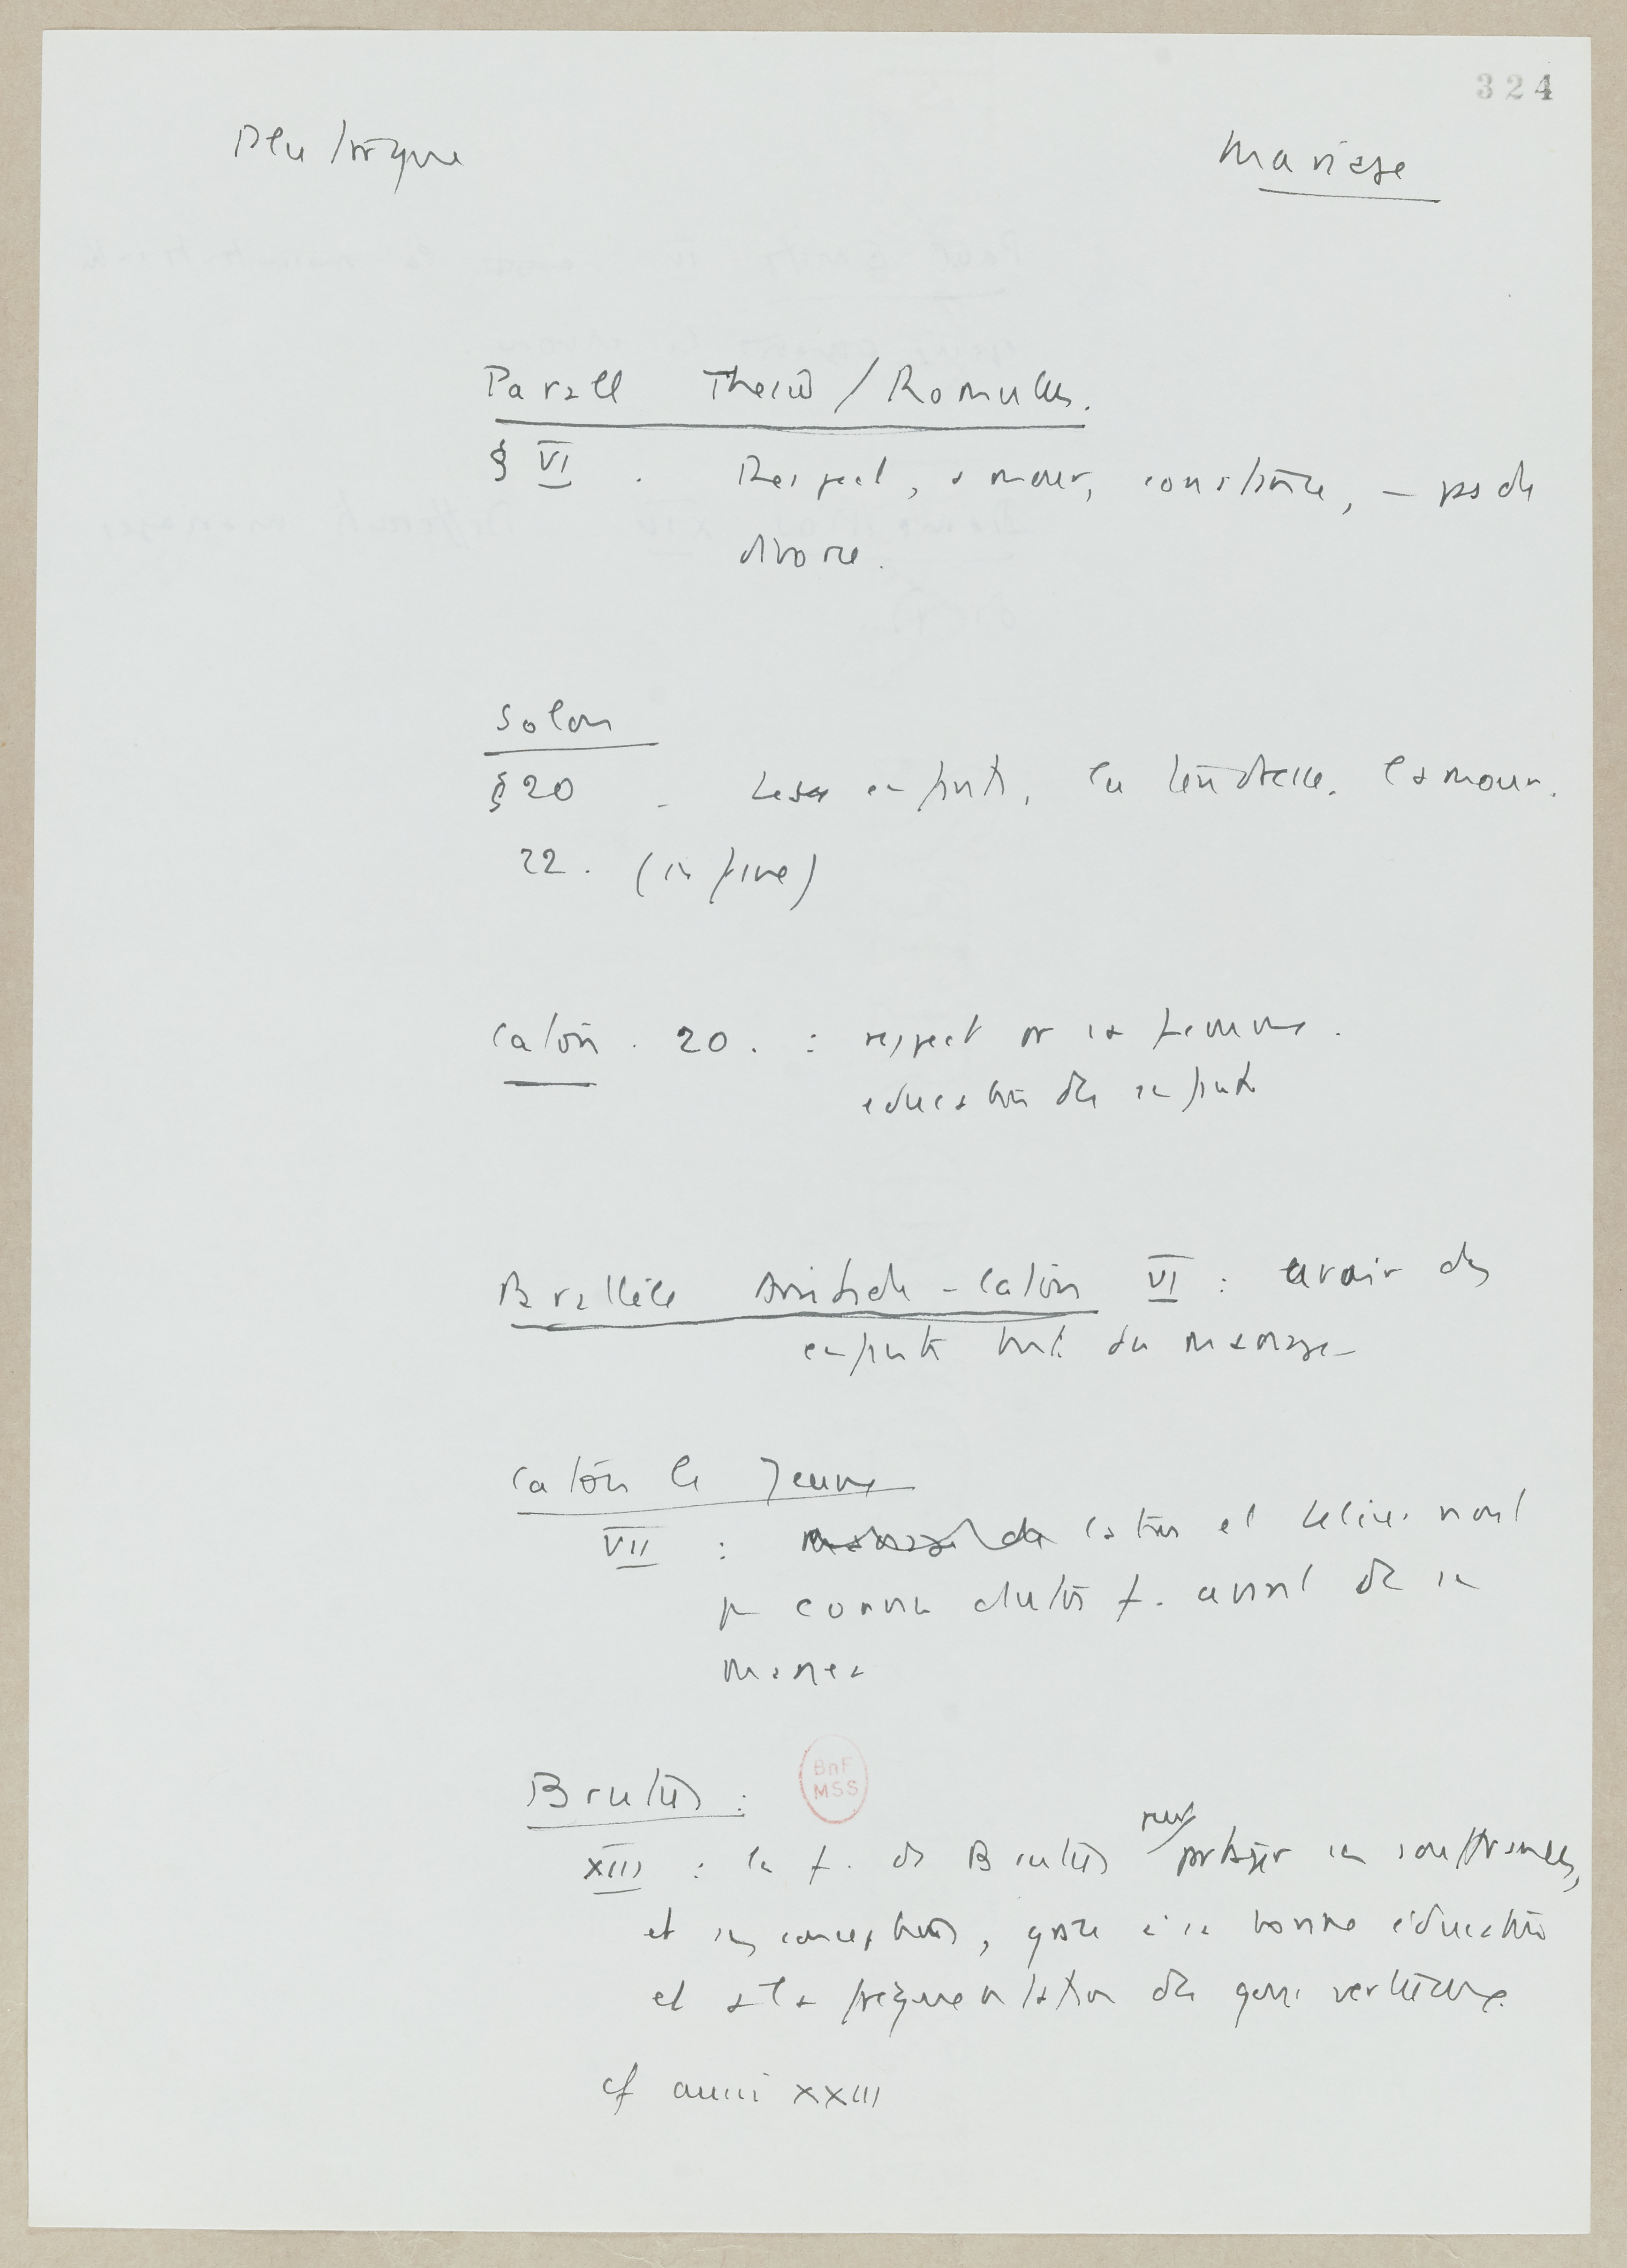 324
Plutarque
Mariage
Parall Thesee / Romulus.
§ VI . Respect, amour, constance, – pas de
divorce.
Solon
§ 20 – Les enfants, la tendresse, l'amour.
22. (in fine)
Caton . 20 . : respect pr sa femme.
education des enfants
Parallèle Aristide - Caton VI : avoir des
enfants but du mariage
Caton le Jeune
VII : Caton et Lelius. n'ont
pas connu d'autres f. avant de se
marier
Brutus :
BnF
MSS
XIII : la f. de Brutus peut partager ses souffrances,
et ses conceptions, grace à sa bonne éducation
et à la fréquentation des gens vertueux.
cf aussi XXIII